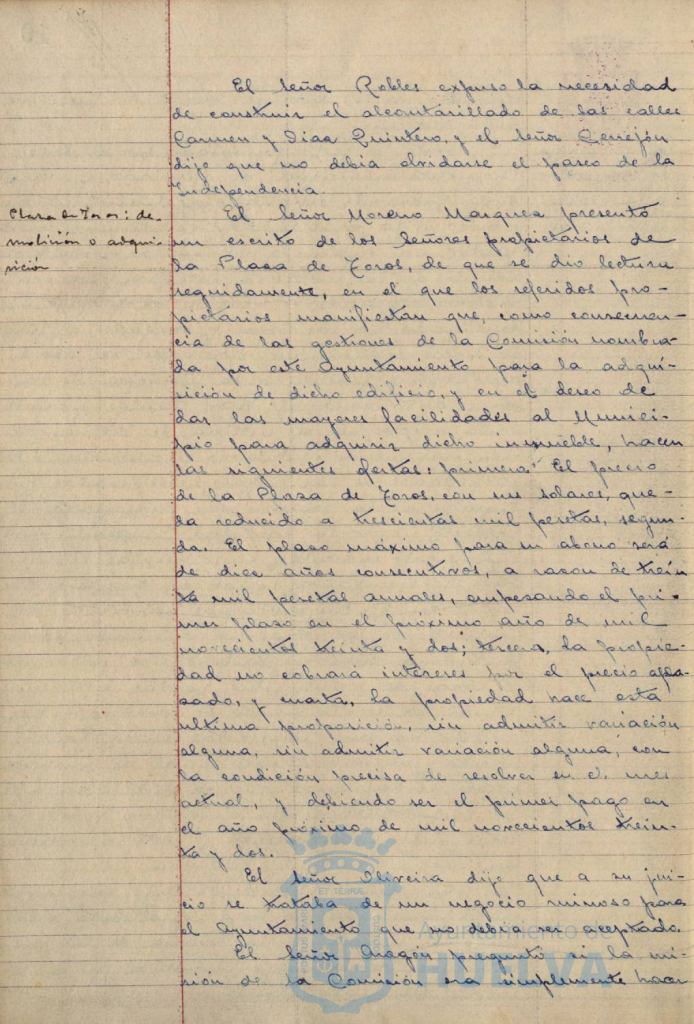 El Señor Robles expuso la necesidad
de construir el alcantarillado de las calles
Carmen y Diaz Quintero, y el Señor Cerrejón
dijo que no debia olvidarse el paseo de la
Independencia.
Plaza de Toros: de-
molición o adqui-
sición
El Señor Moreno Marquez presentó
un escrito de los Señores propietarios de
la Plaza de Toros, de que se dio lectura
seguidamente, en el que los referidos pro-
pietários manifiestan que, como consecuen-
cia de las gestiones de la Comisión nombra-
da por este Ayuntamiento para la adqui-
sición de dicho edificio, y en el deseo de
dar las mayores facilidades al Munici-
pio para adquirir dicho inmueble, hacen
las siguientes ofertas: primera: El precio
de la Plaza de Toros, con sus solares, que-
da reducido a trescientas mil pesetas, segun-
da. El plazo máximo para su abono será
de diez años consecutivos, a razon de trein
ta mil pesetas anuales, empezando el pri-
mer plazo en el próximo año de mil
novecientos treinta y dos; tercera, la propie-
dad no cobrará intereses por el precio apla-
zado, y cuarta, la propiedad hace esta
ultima proposición, sin admitir variación
alguna, sin admitir variación alguna, con
la condición precisa de resolver en el mes
actual, y debiendo ser el primer pago en
el año próximo de mil novecientos trein-
ta y dos.
El Señor Oliveira dijo que a su jui-
cio se trataba de un negocio ruinoso para
el Ayuntamiento que no debia ser aceptado.
El Señor Aragón preguntó si la mi-
sión de la Comisión era simplemente hacer
Ayuntamiento de
HUELVA